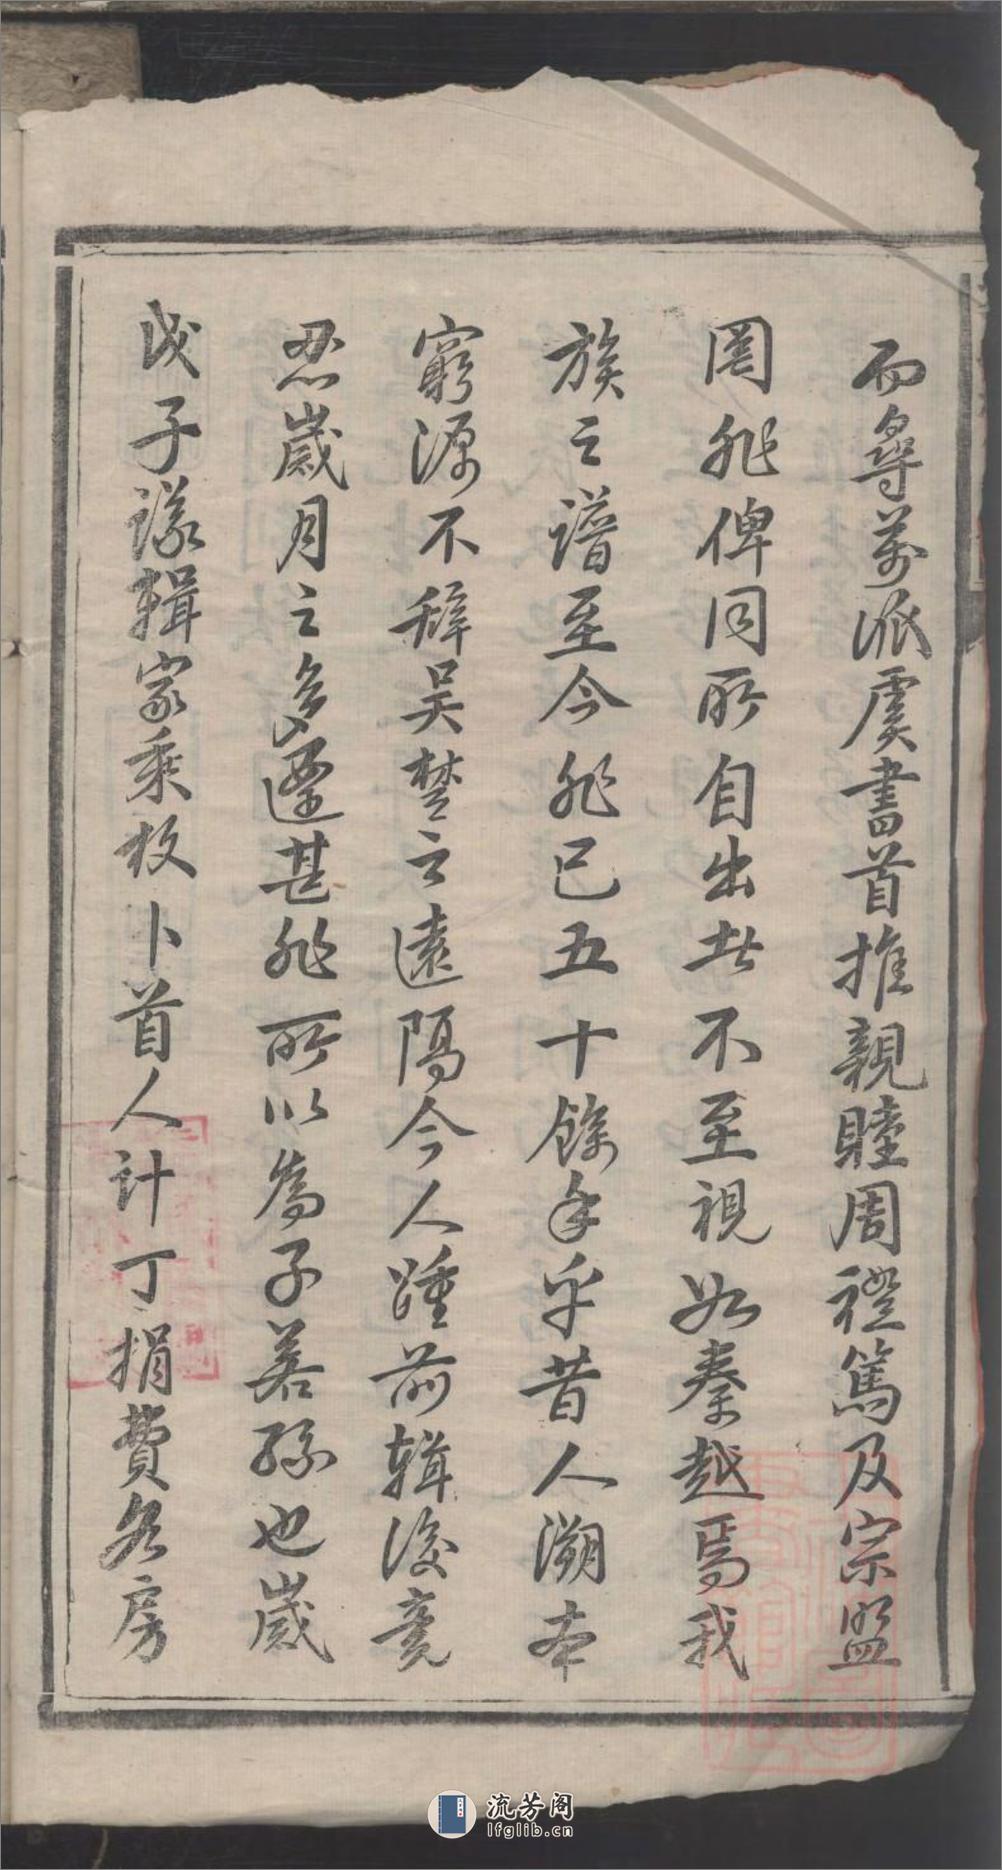 而尋萬派虞書首推親睦周禮篤及宗盟
罔非俾同所自出者不至視如秦越焉我
族之譜至今非已五十餘年乎昔人溯本
窮源不辭吳楚之遠隔今人踵前輯後竟
忍歲月之多遷甚非所以為子若孫也歲
戊子議輯家乘枚卜首人計丁捐費各房
流芳阁
lfglib.cn